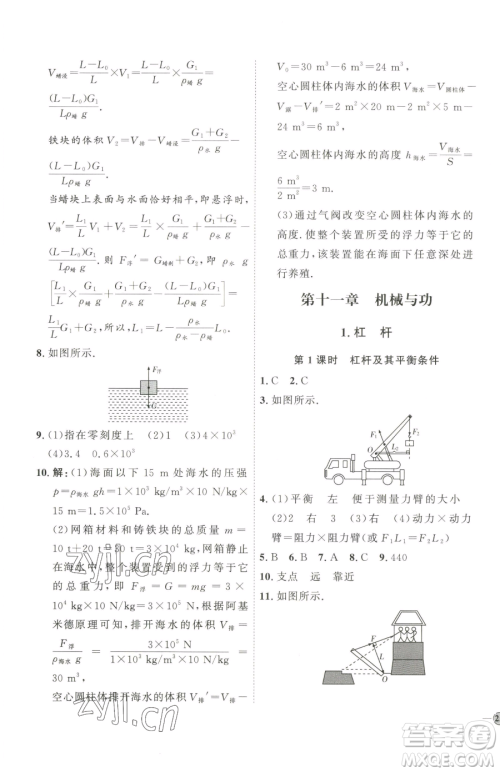 V蜡液=(L-L₀)/L×V₁=(L-L₀)/L×G₁/(ρ蜡 g)=
(L-L₀)G₁/(Lρ蜡 g).
铁块的体积 V₂=V排-V蜡液=(G₁+G₂)/(ρ水 g)-
(L-L₀)G₁/(Lρ蜡 g).
当蜡块上表面与水面恰好相平，即悬浮时，
V排′=L₁/L V₁+V=L₁/L×G₁/(ρ蜡 g)+(G₁+G₂)/(ρ水 g)-
(L-L₀)G₁/(Lρ蜡 g). 则 F浮=G蜡剩+G₂，即 ρ水 g
[L₁/L×G₁/(ρ蜡 g)+(G₁+G₂)/(ρ水 g)-(L-L₀)G₁/(Lρ蜡 g)]=
L₁/L G₁+G₂，所以，L₁=L-ρ水/(ρ水-ρ蜡) L₀.
8. 如图所示.
F浮
9. (1)指在零刻度上 (2)1 (3)4×10³
(4)3.4 0.6×10³
10. 解：(1)海面以下 15 m 处海水的压强
p=ρ海水 gh=1×10³ kg/m³×10 N/kg×
15 m=1.5×10⁵ Pa.
(2)网箱材料和铸铁块的总质量 m=
10 t+20 t=30 t=3×10⁴ kg，网箱悬浮
在海水中，整个装置受到的浮力等于它
的总重力，即 F浮=G=mg=3×
10⁴ kg×10 N/kg=3×10⁵ N，根据阿基
米德原理可知，排开海水的体积 V排=
F浮/(ρ海水 g)=3×10⁵ N/(1×10³ kg/m³×10 N/kg)=
30 m³，
空心圆柱体排开海水的体积 V排′=V排-
V₀=30 m³-6 m³=24 m³，
空心圆柱体内海水的体积 V海水=V圆柱体-
V排′=1 m²×10 m×2... 
空心圆柱体内海水的高度 h海水=V海水/S=
6 m³/2 m²=3 m.
(3)通过气阀改变空心圆柱体内海水的
高度，使整个装置所受的浮力等于它的
总重力，该装置能在海面下任意深处进
行养殖.
第十一章 机械与功
1. 杠 杆
第 1 课时 杠杆及其平衡条件
1. C 2. C
3. 如图所示.
F₁ L₁ L₂ F₂ O
4. (1)平衡 左 便于测量力臂的大小
(2)2 右 3 (3)右 4 (4)动力×
动力臂=阻力×阻力臂(或 F₁L₁=F₂L₂)
5. B 6. B 7. B 8. C 9. 440
10. 支点 远 靠近
11. 如图所示.
F L O
zyjl.cn
zyjl.cn
答案圈
MXQE.COM